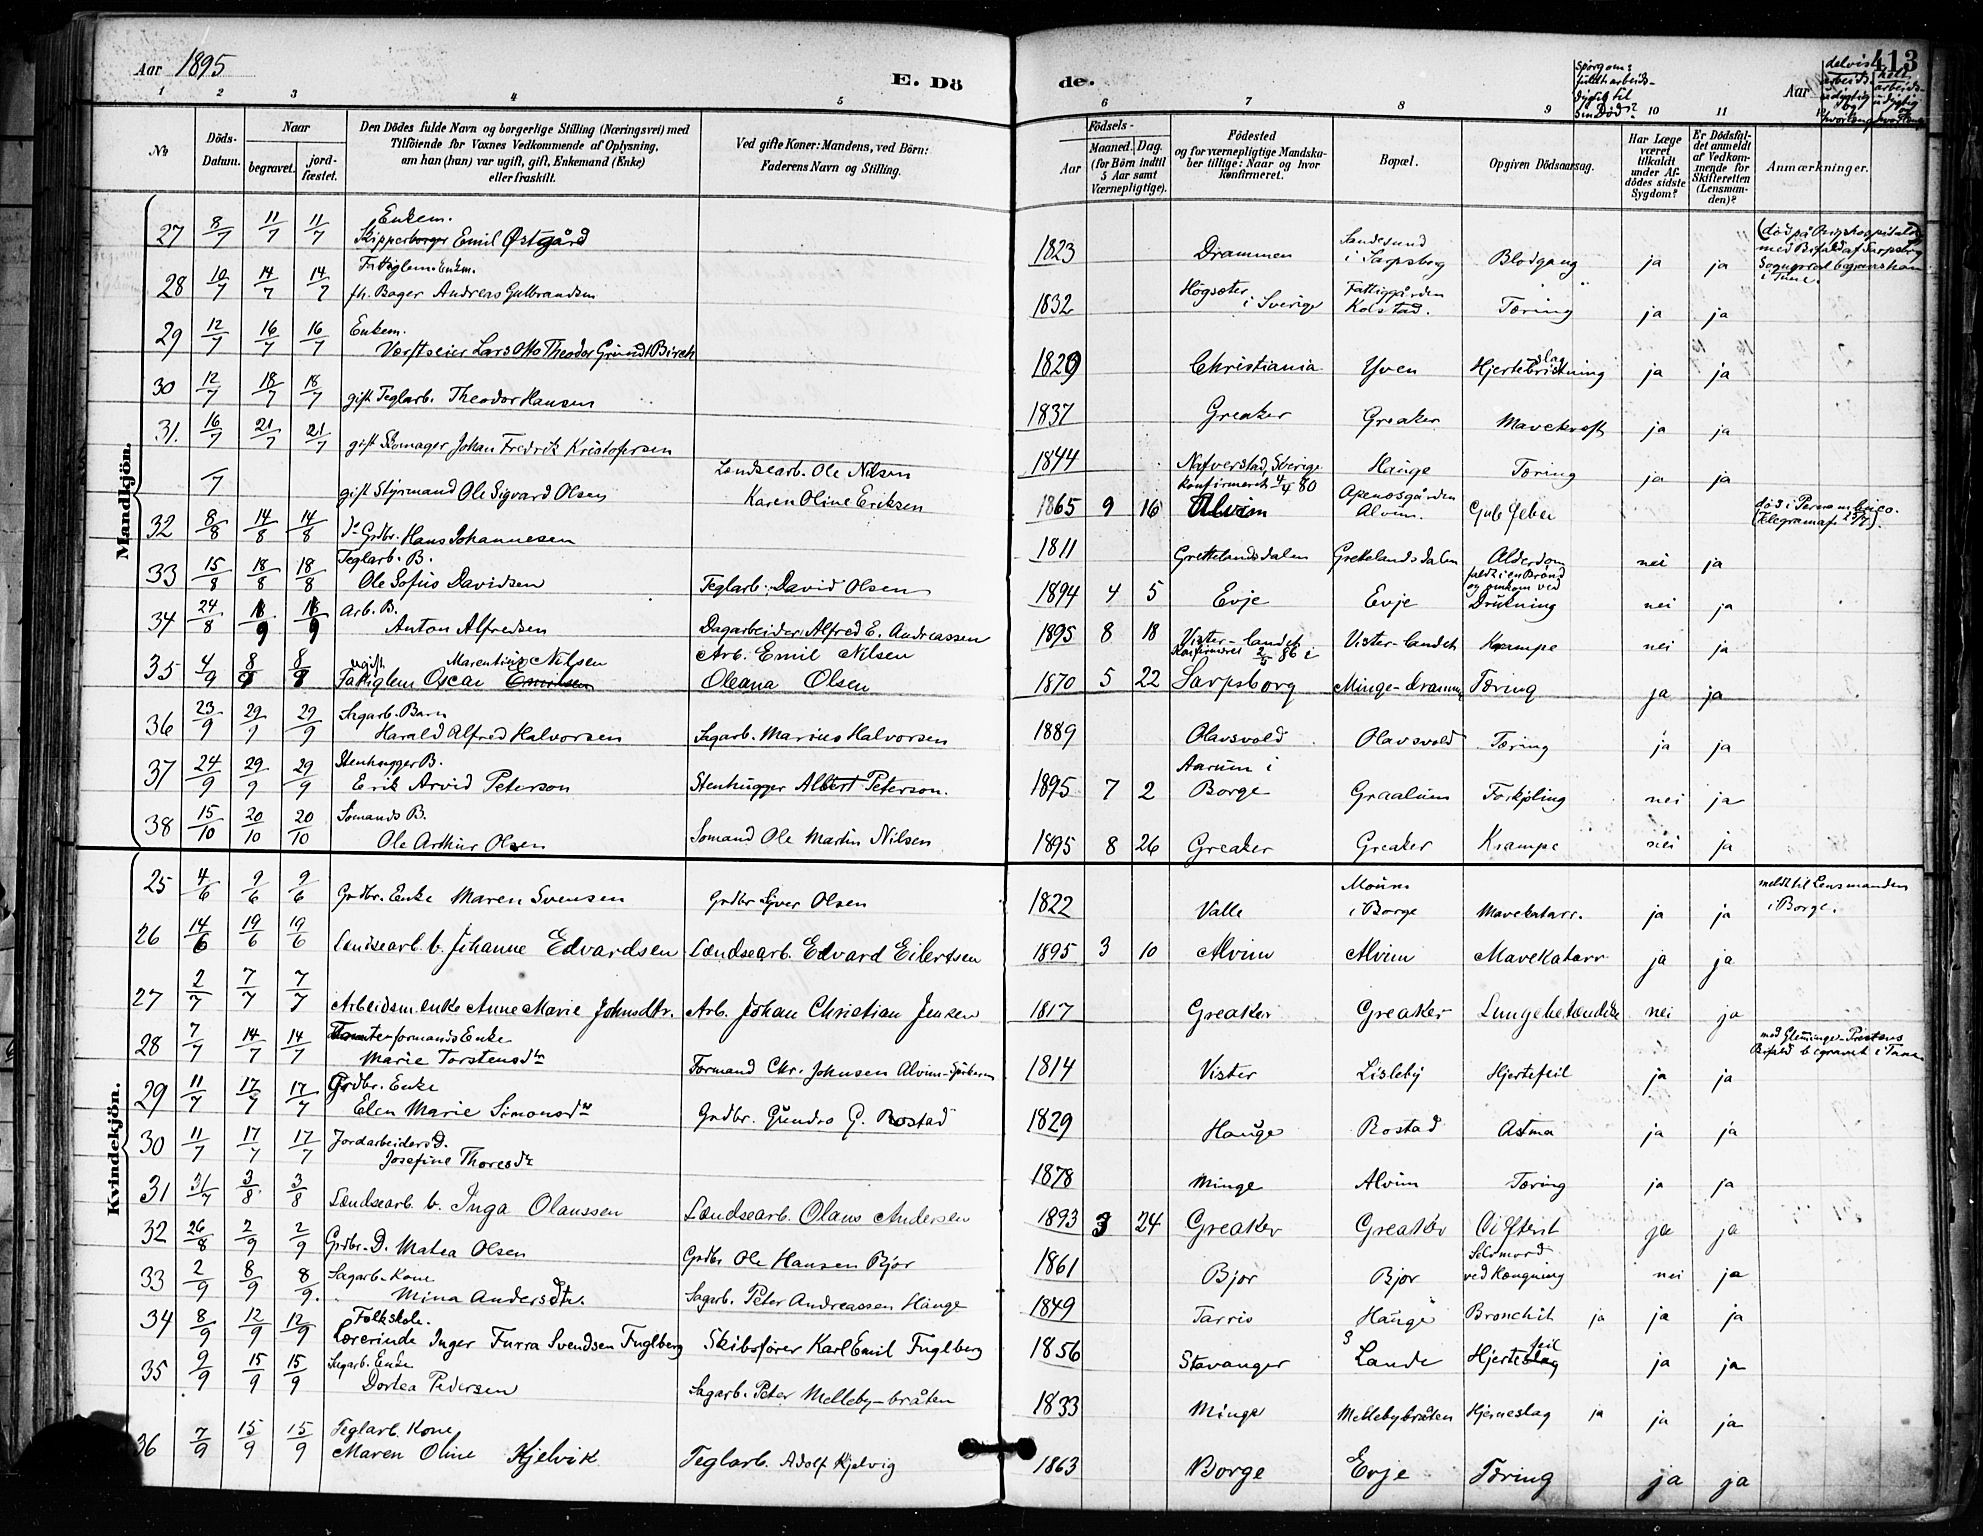 Aar 1895
E. Döde.
413
Aar
Spørgom: fuldt arbeidsdygtig til sin Død?
delvist arbeidsudygtig og hvorlænge
helt arbeidsudygtig
1 2 3 4 5 6 7 8 9 10 11
No
Döds-Datum.
Naar begravet. jordfæstet.
Den Dödes fulde Navn og borgerlige Stilling (Næringsvei) med Tilföiende for Voxnes Vedkommende af Oplysning, om han (hun) var ugift, gift, Enkemand (Enke) eller fraskilt.
Ved gifte Koner: Mandens, ved Börn: Faderens Navn og Stilling.
Födsels- Aar Maaned. Dag. (for Börn indtil 5 Aar samt Værnepligtige).
Födested og for værnepligtige Mandskaber tillige: Naar og hvor konfirmeret.
Bopæl.
Opgiven Dödsaarsag.
Har Læge været tilkaldt under Afdödes sidste Sygdom?
Er Dödsfaldet anmeldt af Vedkommende for Skifteretten (Lensmanden)?
Anmærkninger.
Mandkjön.
27 8/7 11/7 11/7 Enkem. Skipperborger Emil Østgård 1823 Drammen Sandesund i Sarpsborg Blodgang ja ja (død på Rigshospitalet, med Bifald af Sarpsborg Sogneprest begravet han i Tune.
28 10/7 14/7 14/7 Fattiglem. Enkm. fh. Bager Andreas Gulbrandsen 1832 Högsæter i Sverige Fattiggården Kolstad. Tæring ja ja
29 12/7 16/7 16/7 Enkem. Værftseier Lars Otto Theodor Gründt Birch 1829 Christiania Yven Hjerteslag ja ja
30 12/7 18/7 18/7 gift Teglarb. Theodor Hansen 1837 Greaker Greaker Mavekræft ja ja
31. 16/7 21/7 21/7 gift Skomager Johan Fredrik Kristofersen 1844 Nafverstad, Sverige Hauge Tæring ja ja
/7 gift Styrmand Ole Sigvard Olsen Landsearb. Ole Nilsen Karen Oline Eriksen 1865 9 16 konfirmeret 4/4 80 Alvim Apenæsgården Alvim. Gul Feber død i Pernambuco. (Telegramaf. 29/7).
32 8/8 14/8 14/8 Grdbr. Hans Johannesen 1811 Grettelandsdalen Grettelandsdalen Alderdom nei ja
33 15/8 18/8 18/8 Teglarb. B. Ole Sofus Davidsen Teglarb. David Olsen 1894 4 5 Evje Evje faldt i en Brønd og omkom ved Drukning nei ja
34 24/8 1/9 1/9 Arb. B. Anton Alfredsen Dagarbeider Alfred E. Andreassen 1895 8 18 Vister-landet Vister-landet Krampe nei ja
35 4/9 8/9 8/9 ugift Fattiglem Oscar Marentius Nilsen Arb. Emil Nilsen Oleana Olsen 1870 5 22 Konfirmeret 86 i Sarpsborg Minge- Tæring ja ja
36 23/9 29/9 29/9 Sagarb. Barn Harald Alfred Halvorsen Sagarb. Marius Halvorsen 1889 Olavsvold Olavsvold Tæring ja ja
37 24/9 29/9 29/9 Stenhugger B. Erik Arvid Peterson Stenhugger Albert Peterson. 1895 7 2 Aarum i Borge Graalum Forkjøling nei ja
38 15/10 20/10 20/10 Sømands B. Ole Arthur Olsen Sømand Ole Martin Nilsen 1895 8 26 Greaker Greaker Krampe nei ja
Kvindekjön.
25 4/6 9/6 9/6 Grdbr. Enke Maren Svensen Grdbr. Syver Olsen 1822 Valle Moum i Borge Mavekatarr. ja ja meldt til Lensmanden i Borge.
26 14/6 19/6 19/6 Landsearb. b. Johanne Edvardsen Landsearb. Edvard Eilertsen 1895 3 10 Alvim Alvim Mavekatarr ja ja
27 2/7 7/7 7/7 Arbeidsm. enke Anne Marie Johnsdtr. Arb. Johan Christian Jensen 1817 Greaker Greaker Lungebetændelse nei ja
28 7/7 14/7 14/7 formands Enke Marie Torstensdtr Formand Chr. Johnsen Alvim- 1814 Vister Lisleby Hjertefeil ja ja med Glemminge-Prestens Bifald begravet i Tune
29 11/7 17/7 17/7 Grdbr. Enke Elen Marie Simonsdtr Grdbr. Gundro G. Rostad 1829 Hauge Rostad Astma ja ja
30 11/7 17/7 17/7 Jordarbeiders D. Josefine Thoresdtr 1878 Minge Alvim Tæring ja ja
31 31/7 3/8 3/8 Landsearb. b. Inga Olaussen Landsearb. Olaus Andersen 1893 3 24 Greaker Greaker ja ja
32 26/8 2/9 2/9 Grdbr. D. Matea Olsen Grdbr Ole Hansen Bjør 1861 Bjør Bjør Selvmord ved Hængning nei ja
33 2/9 8/9 8/9. Sagarb. Kone Mina Andersdtr. Sagarb. Peter Andreassen Hauge 1849 Tarris Hauge Bronchit ja ja ja
34 8/9 12/9 12/9 Folkskole. lærerinde Inger Furra Svendsen Fuglberg Skibsfører Karl Emil Fuglberg 1856 Stavanger Lande Hjertefeil ja ja
35 9/9 15/9 15/9 Sagarb. Enke Dortea Pedersen Sagarb. Peter Melleby-bråten 1833 Minge Mellebybråten Hjerneslag ja ja ja
36 7/9 15/9 15/9 Teglarb. Kone Maren Oline Kjelvik Teglarb. Adolf Kjelvig 1863 Borge Evje Tæring ja ja